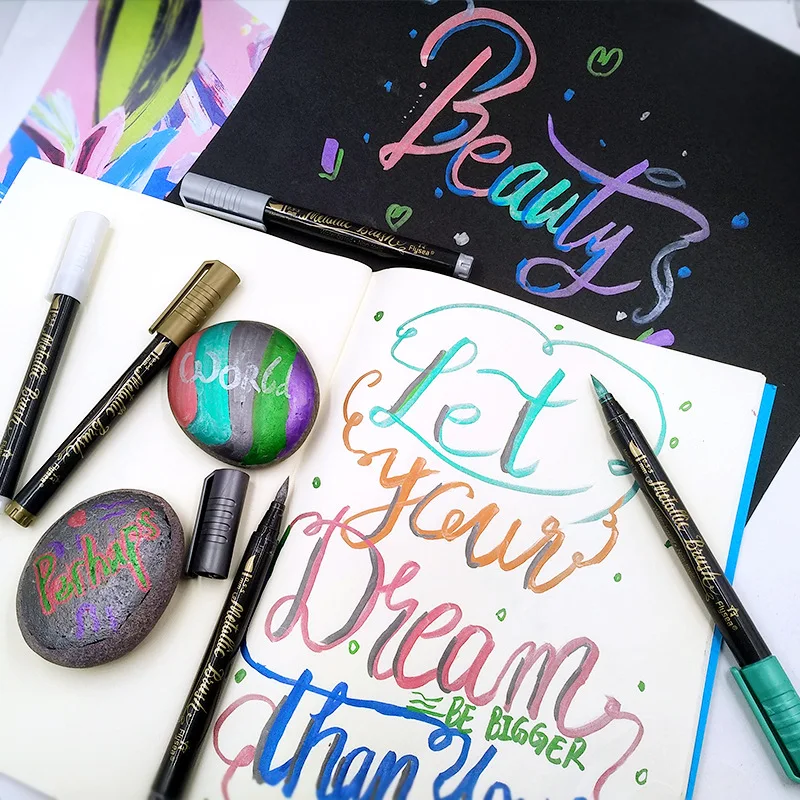 Beauty
Metallic Brush
Flysea
WORLd
Perhaps
Metallic Brush
Flysea
Metallic Brush
Flysea
Metallic Brush
Flysea
Metallic Brush
Flysea
Let
your
Dream
BE BIGGER
than